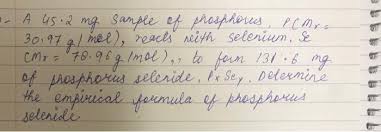 A 45.2 mg sample of phosphorus, P (Mr =
30.97 g/mol), reacts with selenium, Se
(Mr = 78.96 g/mol), to form 131.6 mg
of phosphorus seleride, PxSey. Determine
the empirical formula of phosphorus
selenide